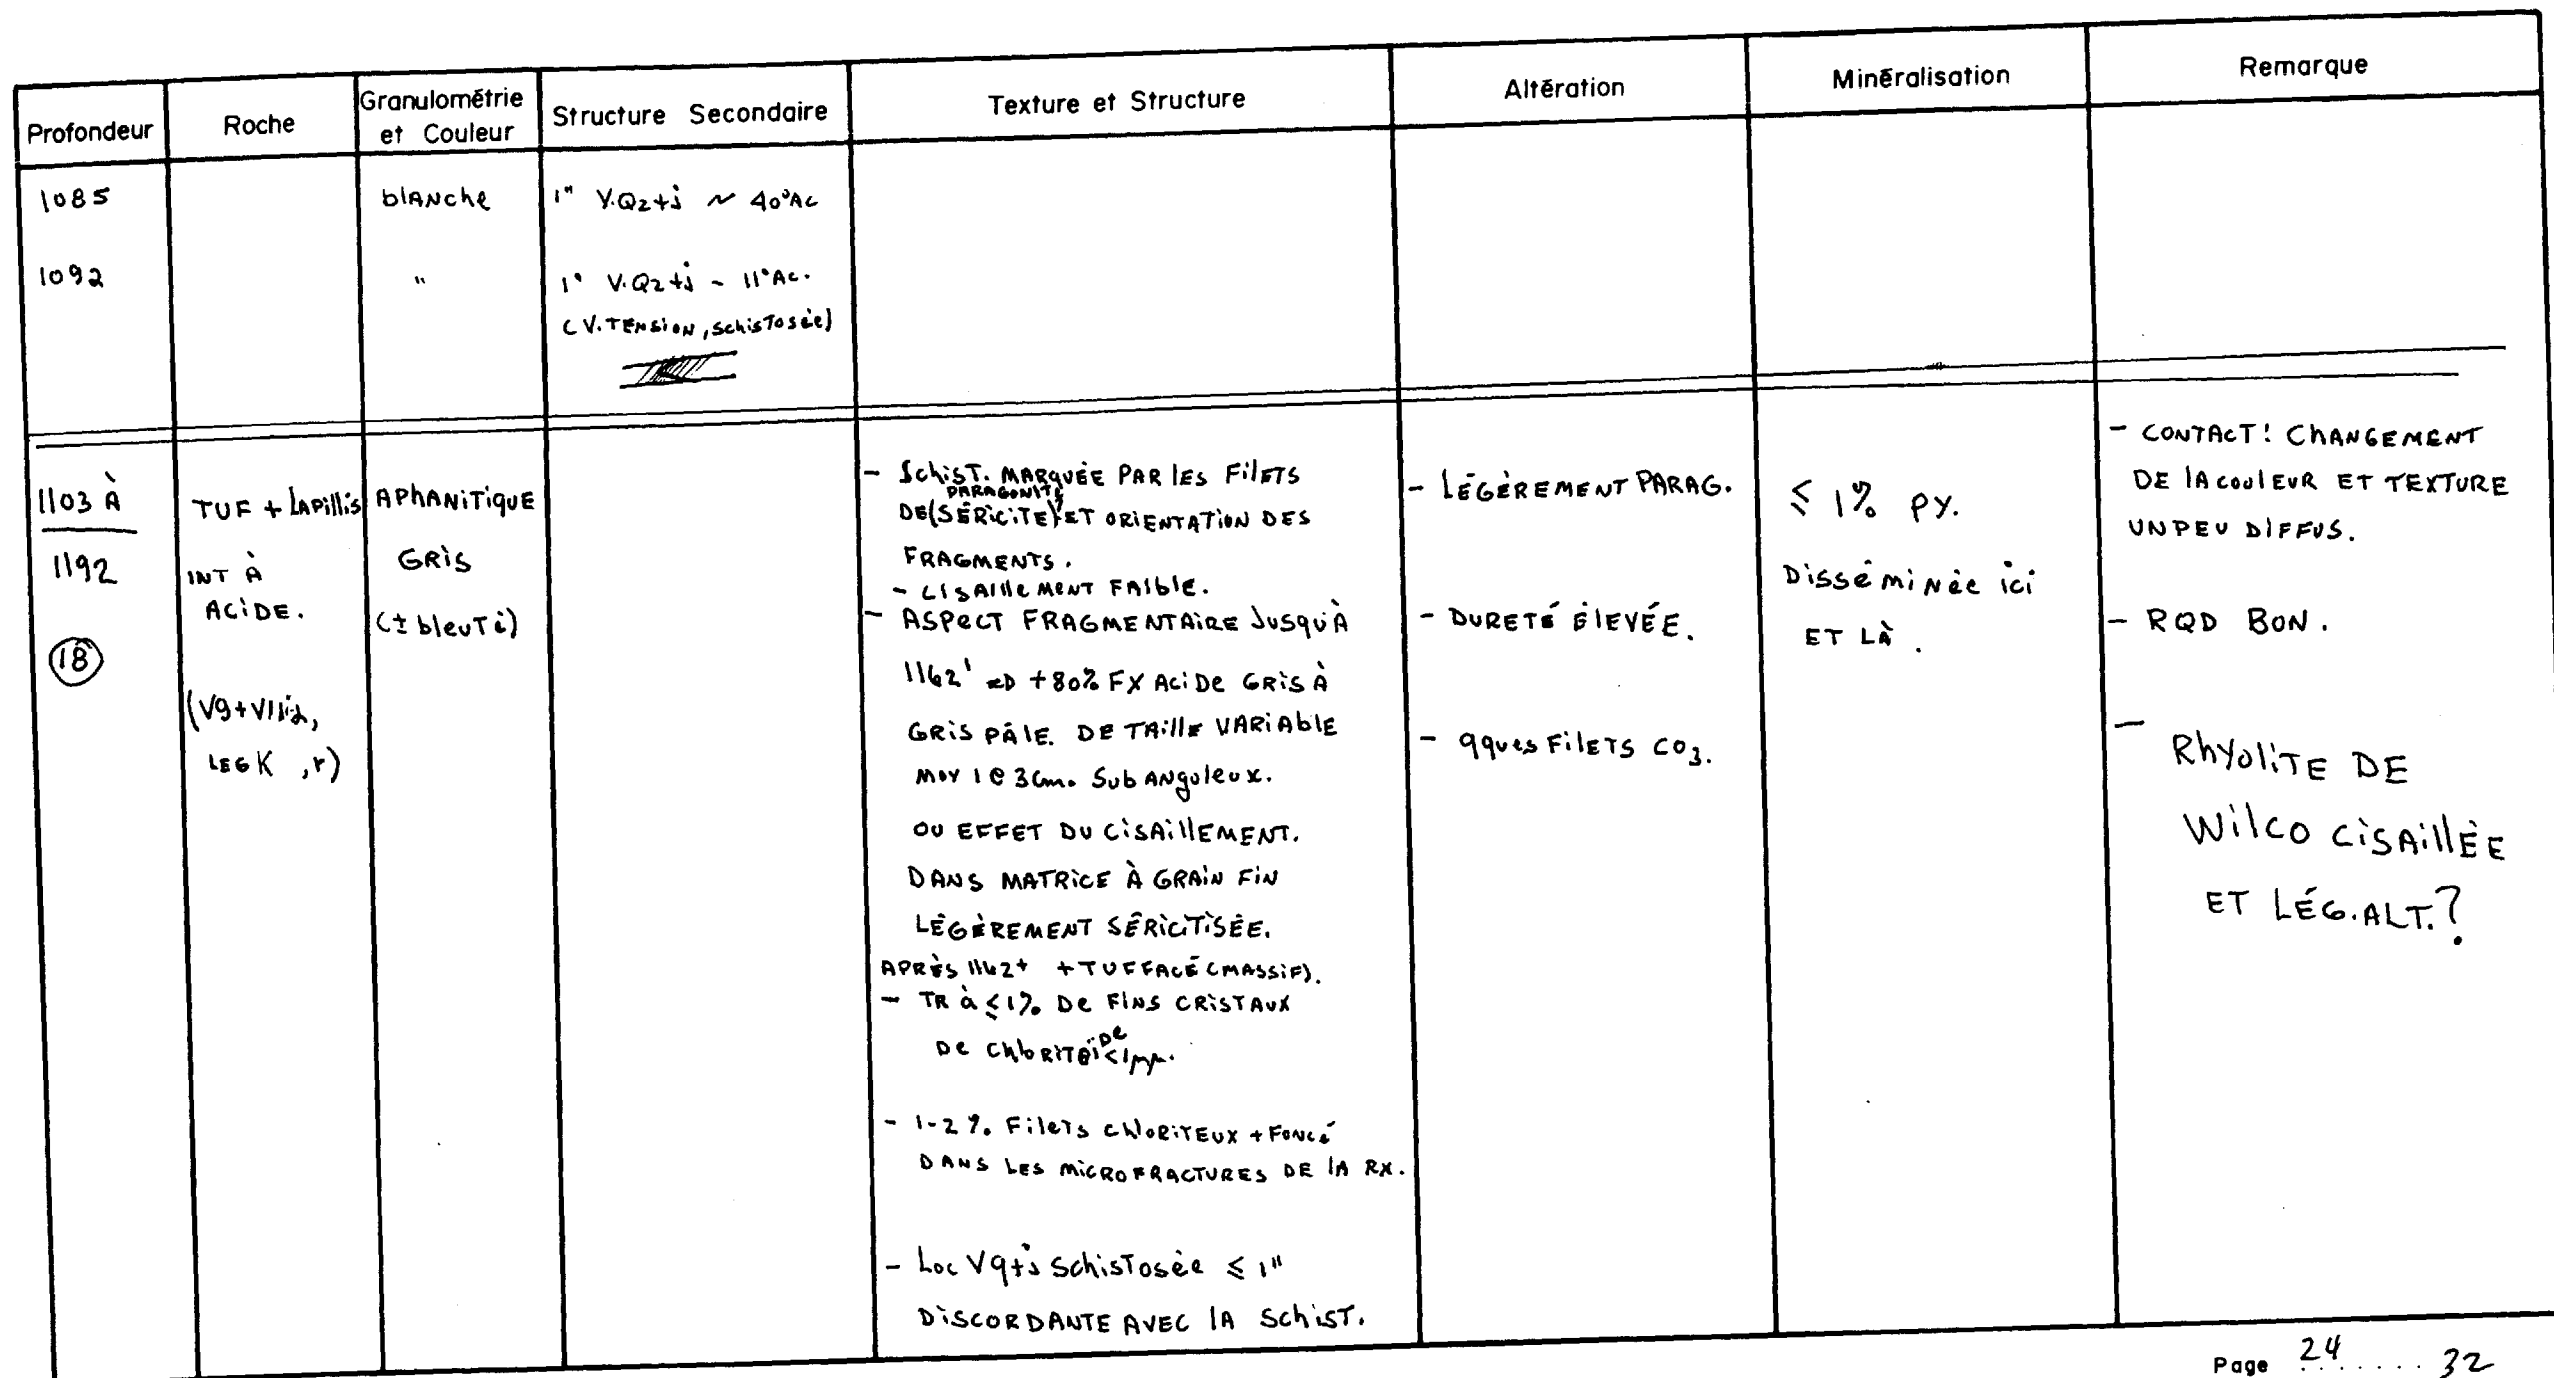 Profondeur
Roche
Granulométrie
et Couleur
Structure Secondaire
Texture et Structure
Altération
Minéralisation
Remarque
1085
blANche
1" V.Qz+j ~ 40°Ac
1092
"
1" V.Qz+j ~ 11°Ac.
(V.TENSION, SchisTosée)
1103 À
1192
18
TUF + LAPillis
INT À
ACIDE.
LEG K , r)
APhANiTiQUE
GRIS
(± bleuTé)
- SchisT. MARQUÉE PAR lES FilETS
PARAGONITE
DE (SÉRICITE) ET ORIENTATION DES
FRAGMENTS.
- CISAIllEMENT FAIblE.
- ASPECT FRAGMENTAIRE JUSQU'À
1162' => +80% FX ACIDE GRIS À
GRIS PÂlE. DE TAIllE VARIAblE
MOY 1 @ 3cm. SubANguleux.
OU EFFET DU CISAIllEMENT.
DANS MATRICE À GRAIN FIN
LÉGÈREMENT SÉRICITISÉE.
APRÈS 1162+ + TUFFACÉ (MASSIF).
- TR à ≤1% DE FINS CRISTAUX
DE ChlORITOÏDE <1mm.
- 1-2 % FilETS ChlORITEUX + FONCÉ
DANS LES MICROFRACTURES DE lA RX.
- Loc Vq+j SchisTosée ≤ 1"
DISCORDANTE AVEC lA SchIST.
- LÉGÈREMENT PARAG.
- DURETÉ ÉlEVÉE.
- qques FilETS CO3.
≤ 1% PY.
DissémiNée ici
ET LÀ.
- CONTACT! ChANGEMENT
DE lA COUlEUR ET TEXTURE
UN PEU DIFFUS.
- RQD BON.
- RhYOliTE DE
WilCO CISAillÉE
ET LÉG.ALT.?
Page 24 ....... 32